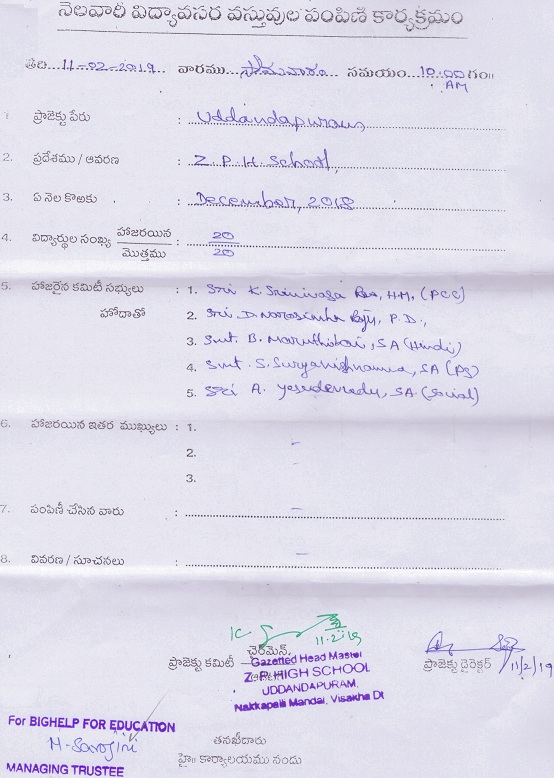 నెలవారి విద్యావసర వస్తువుల పంపిణి కార్యక్రమం
తేది..11-02-2019.. వారము..సోమవారం.. సమయం..10:00 గం॥
AM
1. ప్రాజెక్టు పేరు : Uddandapuram
2. ప్రదేశము / ఆవరణ : Z.P.H. School,
3. ఏ నెల కొఱకు : December, 2018
4. విద్యార్థుల సంఖ్య హాజరయిన / మొత్తము : 20 / 20
5. హాజరైన కమిటీ సభ్యులు : 1. Sri K. Srinivasa Rao, H.M. (PCC)
హోదాతో 2. Sri D Narasimha Raju, P.D.,
3. Smt. B. Maruthibai, SA (Hindi)
4. Smt. S. Suryakishnamma, SA (PS)
5. Sri A. Yesudevudu, SA (Social)
6. హాజరయిన ఇతర ముఖ్యులు : 1.
2. –
3.
7. పంపిణీ చేసిన వారు : –
8. వివరణ / సూచనలు : –
11-2-19
చైర్మెన్,
ప్రాజెక్టు కమిటీ
Gazetted Head Master
Z.P. HIGH SCHOOL
UDDANDAPURAM,
Nakkapalli Mandal, Visakha Dt
ప్రాజెక్టు డైరెక్టర్ 11/2/19
For BIGHELP FOR EDUCATION
M. Sarojini
MANAGING TRUSTEE
తనఖీదారు
హై॥ కార్యాలయము నందు